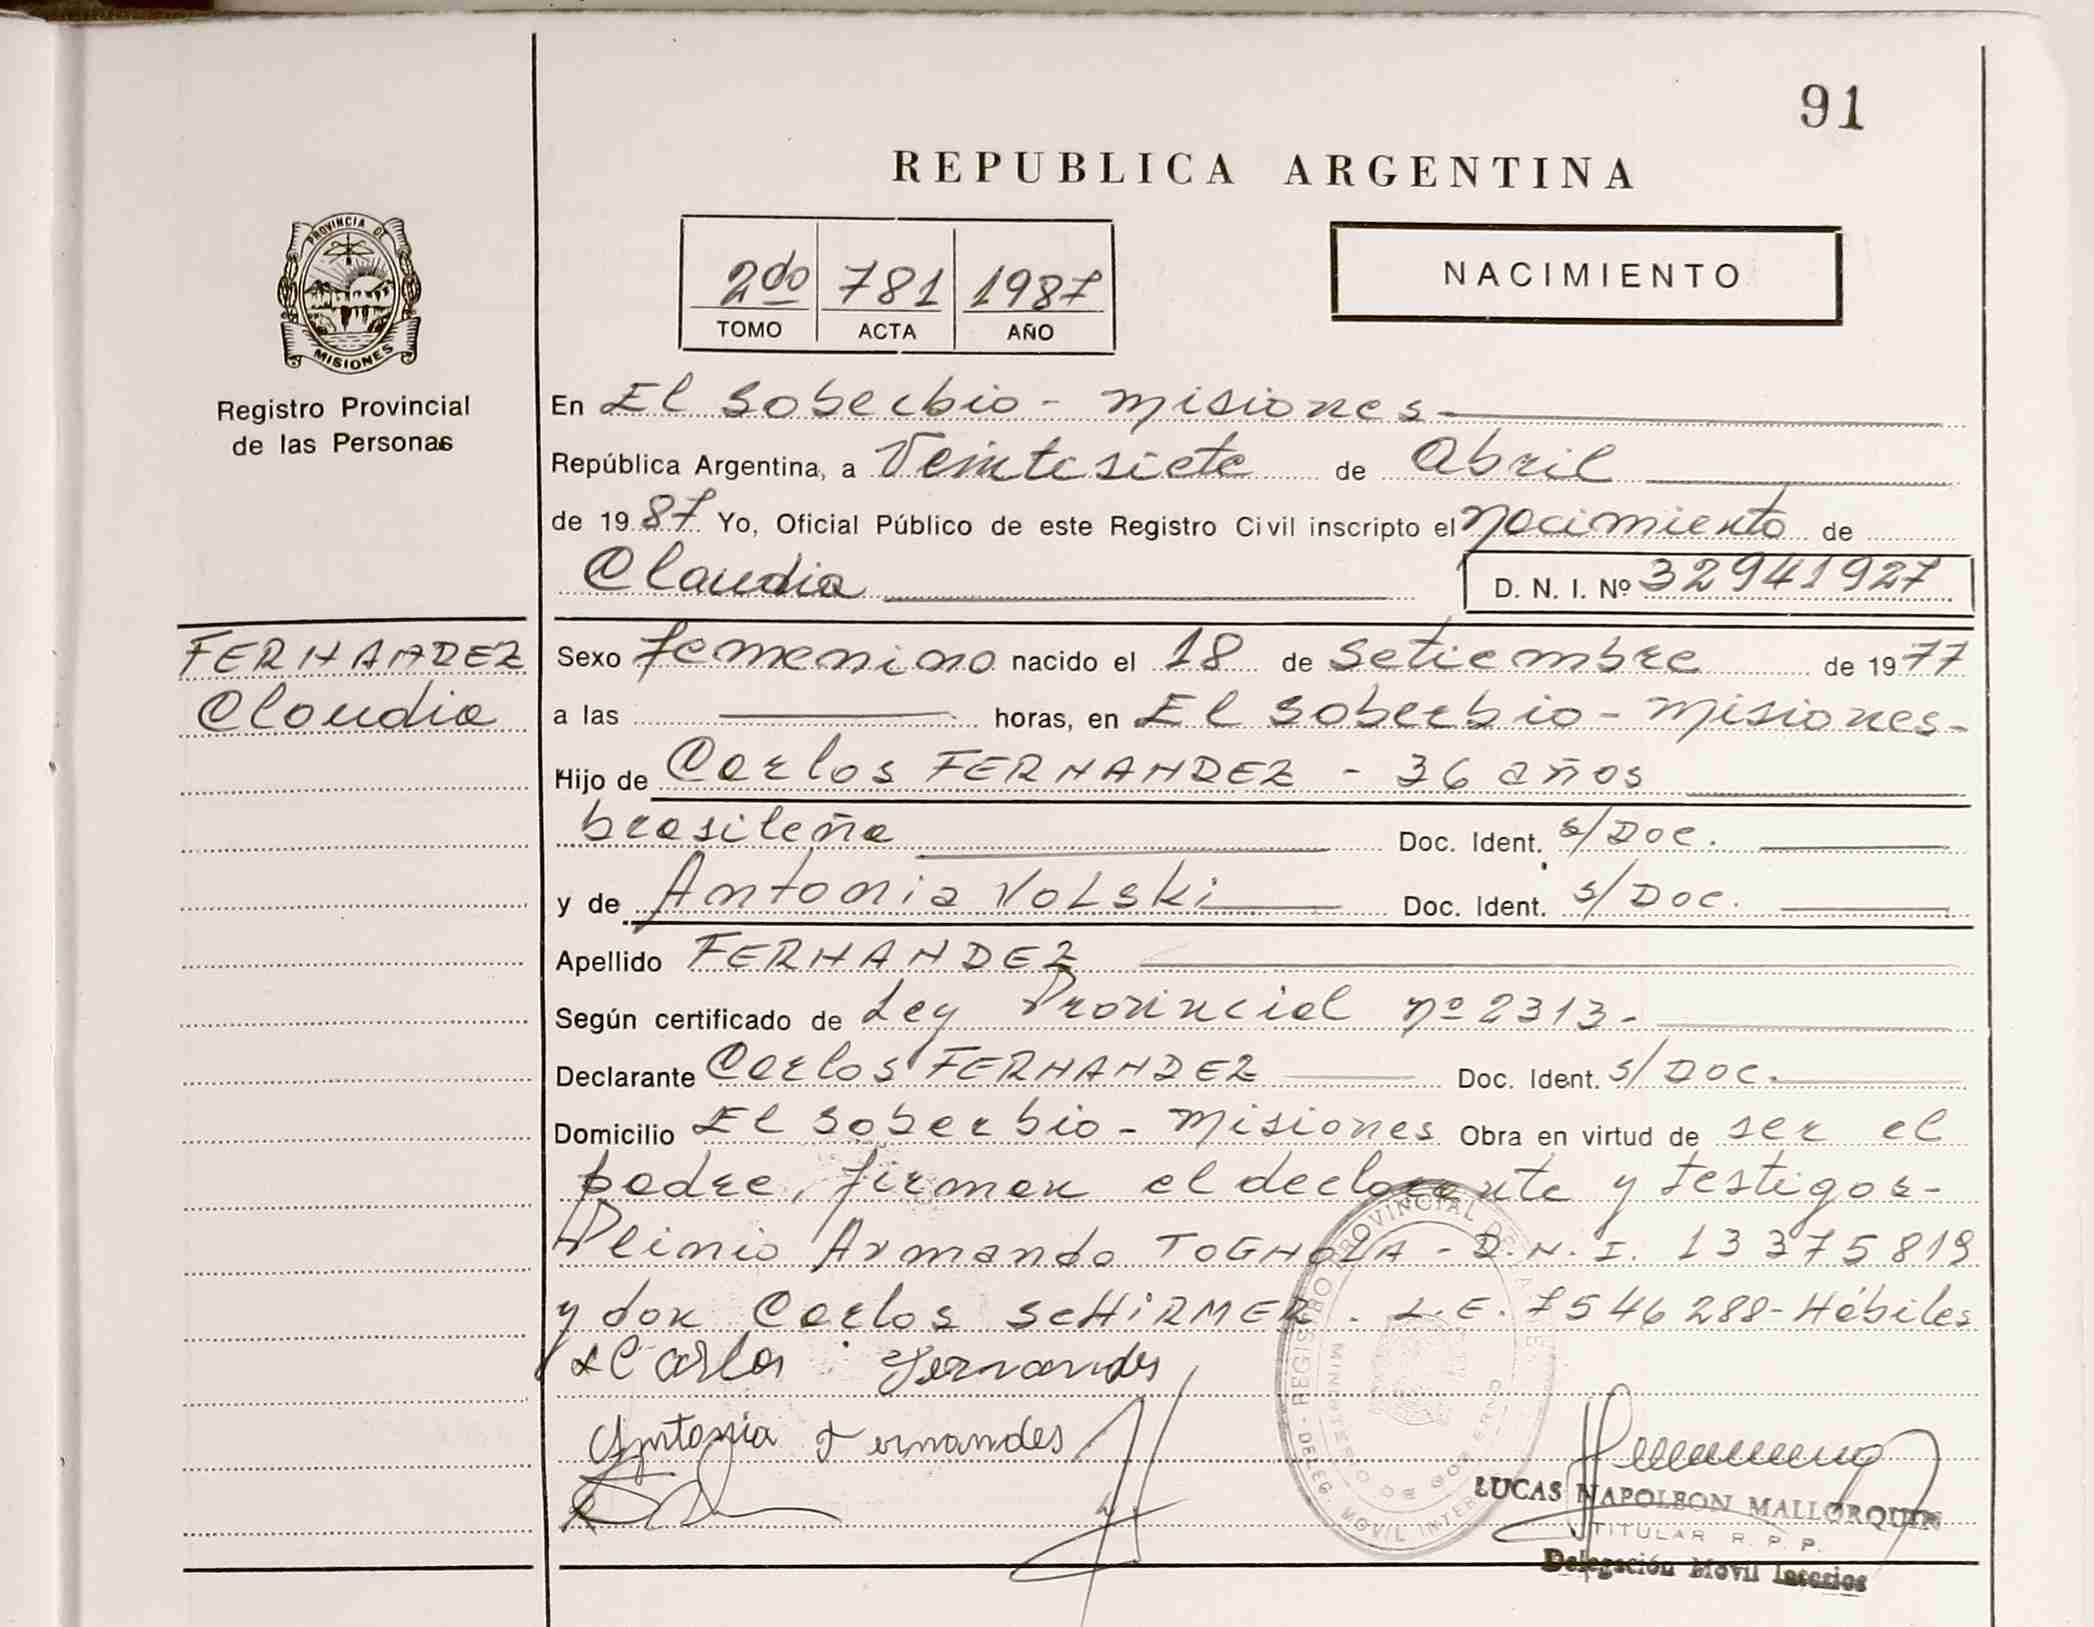 91
REPUBLICA ARGENTINA
PROVINCIA DE
MISIONES
Registro Provincial
de las Personas
2do 781 1987
TOMO ACTA AÑO
NACIMIENTO
En El Soberbio - Misiones
República Argentina, a Veintesiete de Abril
de 1987 Yo, Oficial Público de este Registro Civil inscripto el nacimiento de
Claudia D. N. I. Nº 32941927
FERNANDEZ
Claudia
Sexo femenino nacido el 18 de Setiembre de 1977
a las horas, en El Soberbio - Misiones-
Hijo de Carlos FERNANDEZ - 36 años
brasileña Doc. Ident. s/Doc.
y de Antonia VOLSki Doc. Ident. s/Doc.
Apellido FERNANDEZ
Según certificado de Ley Provincial nº 2313-
Declarante Carlos FERNANDEZ Doc. Ident. s/Doc.
Domicilio El Soberbio - Misiones Obra en virtud de ser el
padre, firman el declarante y testigos-
Plinio Armando TOGNOLA - D.N.I. 13375819
y don Carlos SCHIRMER. L.E. 7546288- Hábiles
Carlos Fernandes
Antonia Fernandes
REGISTRO PROVINCIAL DE LAS
DELEG. MOVIL INTER
MINISTERIO DE GOBIERNO
LUCAS NAPOLEON MALLORQUIN
TITULAR R. P. P.
Delegación Movil Interior